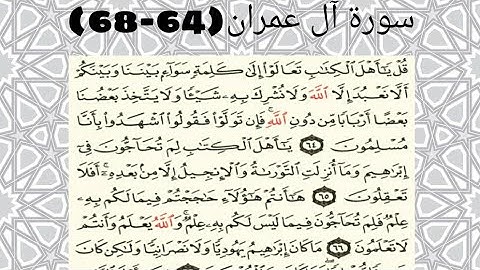 سورة آل عمران (64-68)
قُلْ يَٰٓأَهْلَ ٱلْكِتَٰبِ تَعَالَوْا۟ إِلَىٰ كَلِمَةٍ سَوَآءٍۭ بَيْنَنَا وَبَيْنَكُمْ
أَلَّا نَعْبُدَ إِلَّا ٱللَّهَ وَلَا نُشْرِكَ بِهِۦ شَيْـًٔا وَلَا يَتَّخِذَ بَعْضُنَا
بَعْضًا أَرْبَابًا مِّن دُونِ ٱللَّهِ ۚ فَإِن تَوَلَّوْا۟ فَقُولُوا۟ ٱشْهَدُوا۟ بِأَنَّا
مُسْلِمُونَ ٦٤ يَٰٓأَهْلَ ٱلْكِتَٰبِ لِمَ تُحَآجُّونَ فِىٓ
إِبْرَٰهِيمَ وَمَآ أُنزِلَتِ ٱلتَّوْرَىٰةُ وَٱلْإِنجِيلُ إِلَّا مِنۢ بَعْدِهِۦٓ ۚ أَفَلَا
تَعْقِلُونَ ٦٥ هَٰٓأَنتُمْ هَٰٓؤُلَآءِ حَٰجَجْتُمْ فِيمَا لَكُم بِهِۦ
عِلْمٌ فَلِمَ تُحَآجُّونَ فِيمَا لَيْسَ لَكُم بِهِۦ عِلْمٌ ۚ وَٱللَّهُ يَعْلَمُ وَأَنتُمْ
لَا تَعْلَمُونَ ٦٦ مَا كَانَ إِبْرَٰهِيمُ يَهُودِيًّا وَلَا نَصْرَانِيًّا وَلَٰكِن كَانَ